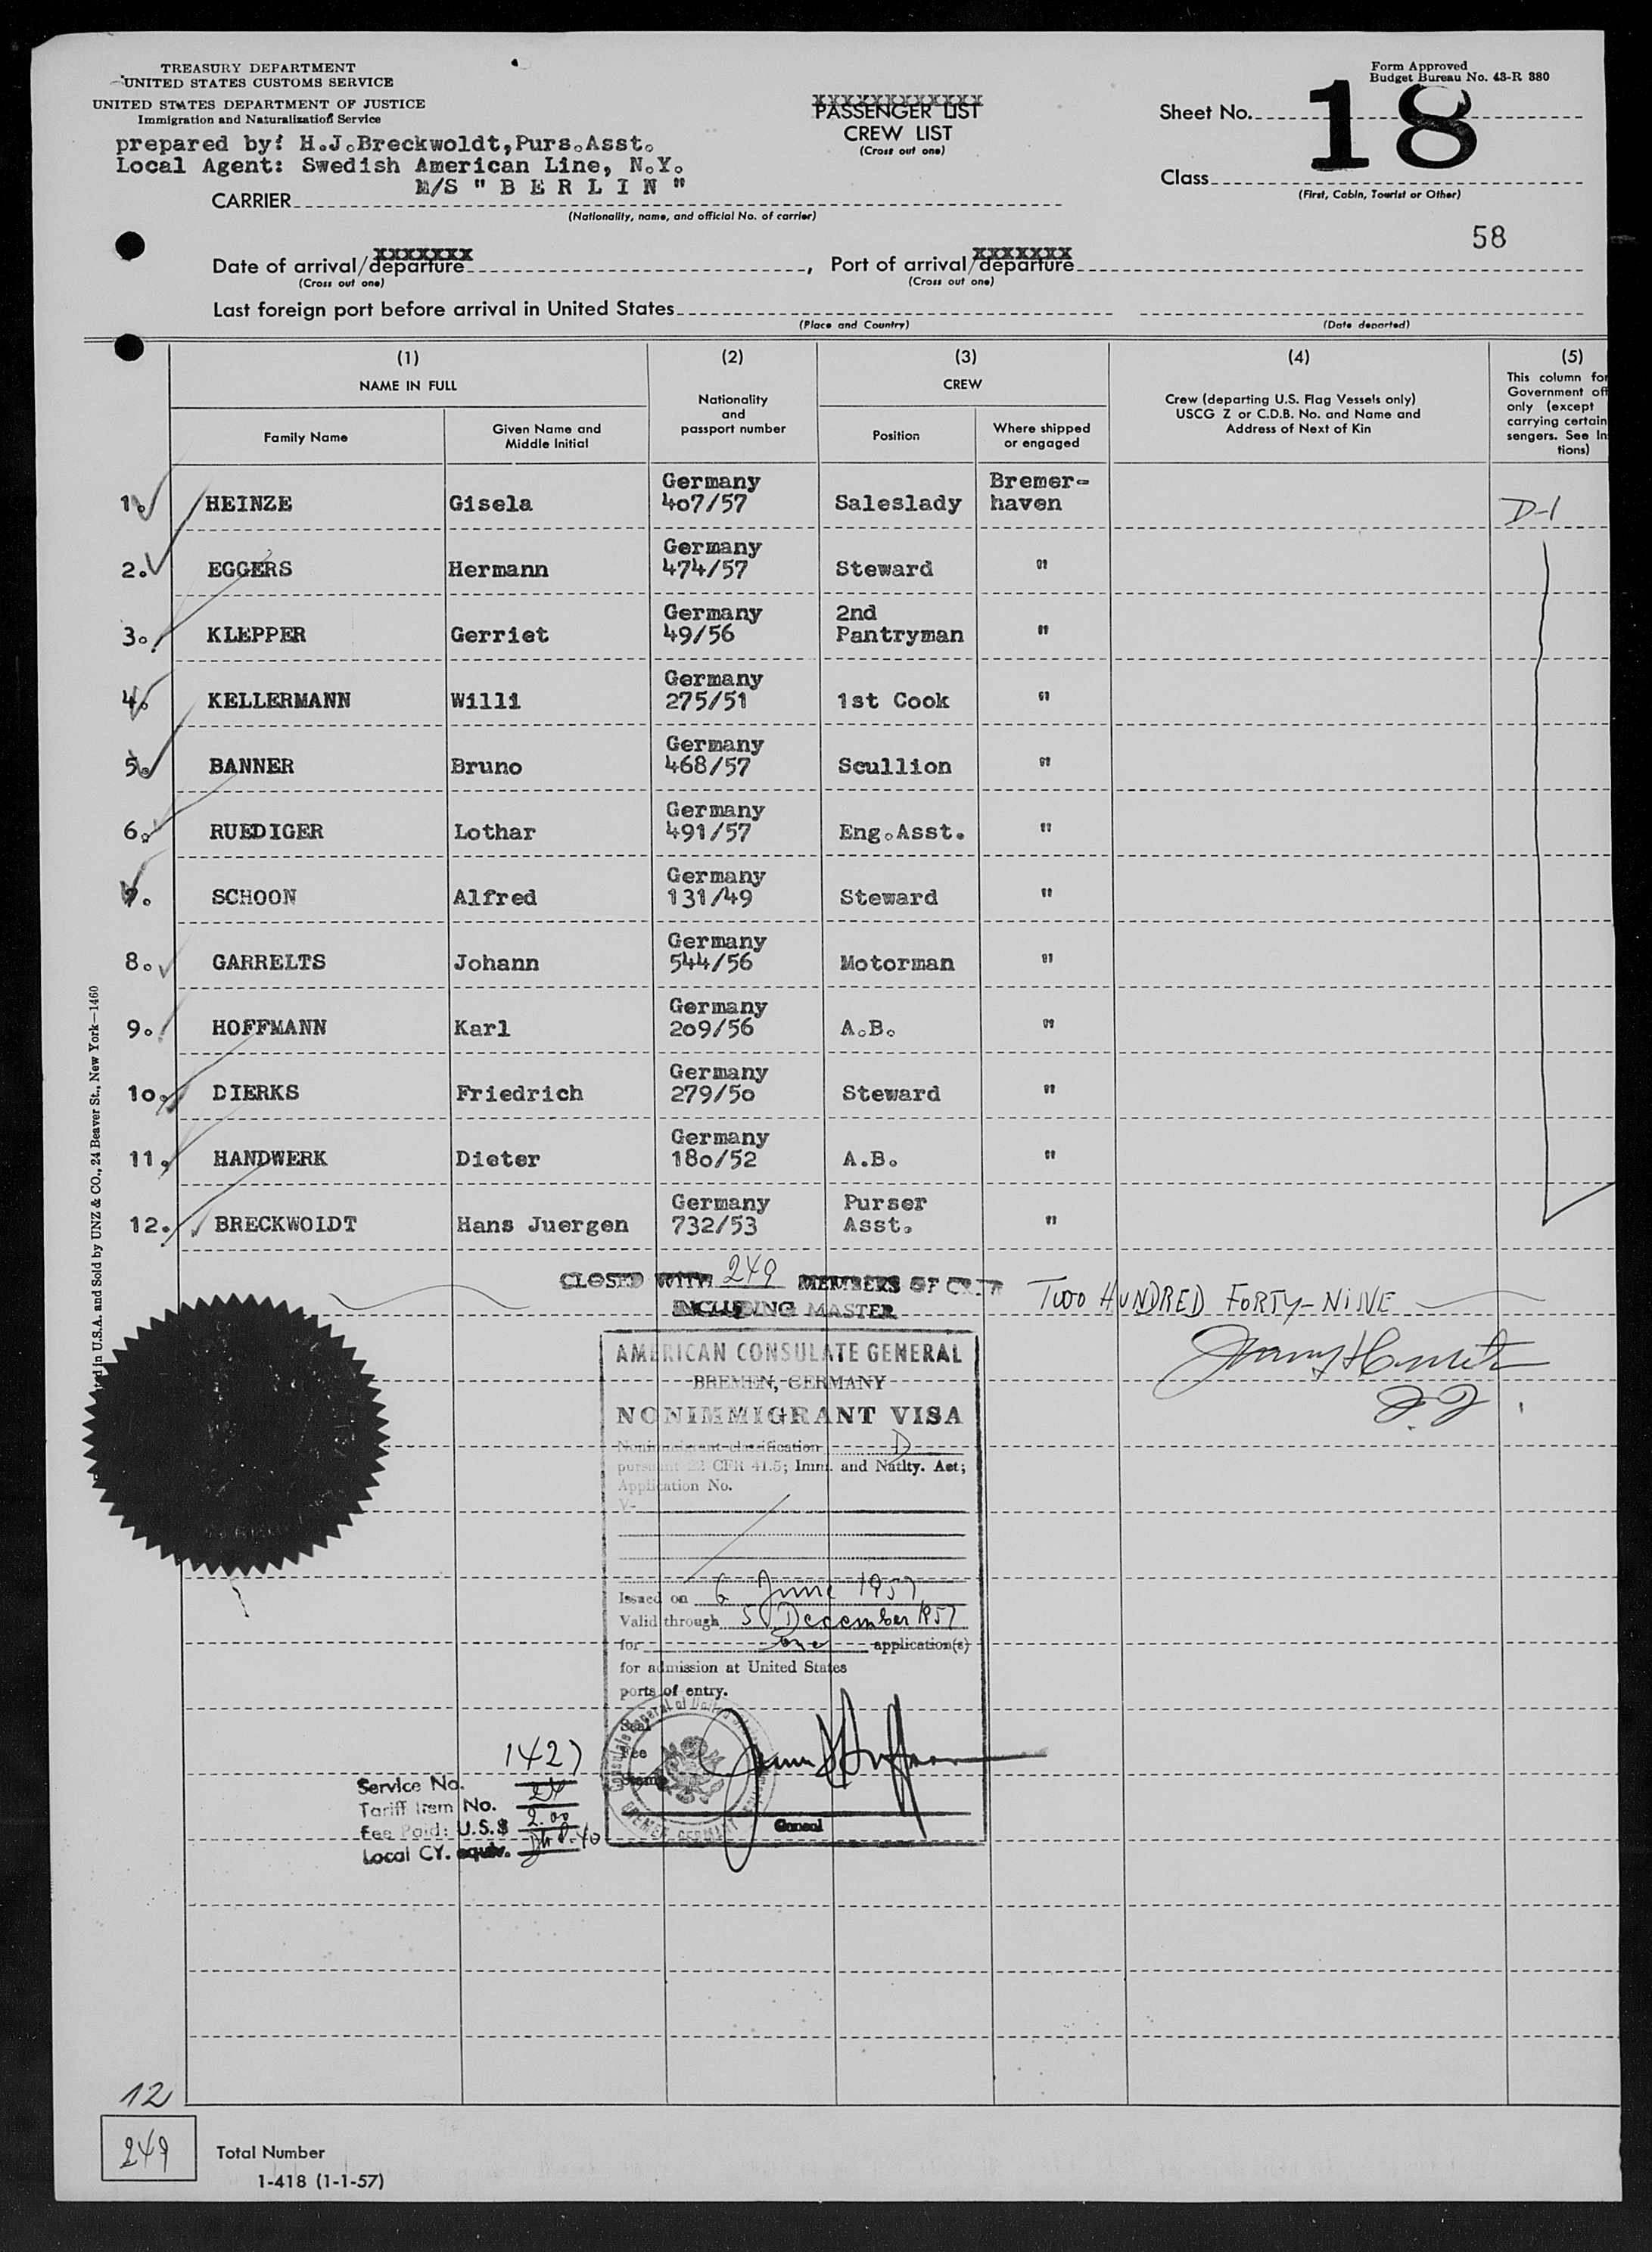 TREASURY DEPARTMENT
UNITED STATES CUSTOMS SERVICE
UNITED STATES DEPARTMENT OF JUSTICE
Immigration and Naturalization Service
prepared by: H.J.Breckwoldt,Purs.Asst.
Local Agent: Swedish American Line, N.Y.
XXXXXXXXXXXXX
PASSENGER LIST
CREW LIST
(Cross out one)
Form Approved
Budget Bureau No. 43-R 380
Sheet No. 18
Class
(First, Cabin, Tourist or Other)
CARRIER M/S " B E R L I N "
(Nationality, name, and official No. of carrier)
58
Date of arrival/departure XXXXXXX, Port of arrival/departure XXXXXXX
(Cross out one) (Cross out one)
Last foreign port before arrival in United States
(Place and Country) (Date departed)
(1) (2) (3) (4) (5)
NAME IN FULL
Family Name
Given Name and
Middle Initial
Nationality
and
passport number
CREW
Position
Where shipped
or engaged
Crew (departing U.S. Flag Vessels only)
USCG Z or C.D.B. No. and Name and
Address of Next of Kin
This column for
Government off
only (except
carrying certain
sengers. See In
tions)
1. HEINZE Gisela Germany 407/57 Saleslady Bremer-haven D-1
2. EGGERS Hermann Germany 474/57 Steward "
3. KLEPPER Gerriet Germany 49/56 2nd Pantryman "
4. KELLERMANN Willi Germany 275/51 1st Cook "
5. BANNER Bruno Germany 468/57 Scullion "
6. RUEDIGER Lothar Germany 491/57 Eng.Asst. "
7. SCHOON Alfred Germany 131/49 Steward "
8. GARRELTS Johann Germany 544/56 Motorman "
9. HOFFMANN Karl Germany 209/56 A.B. "
10. DIERKS Friedrich Germany 279/50 Steward "
11. HANDWERK Dieter Germany 180/52 A.B. "
12. BRECKWOLDT Hans Juergen Germany 732/53 Purser Asst. "
CLOSED WITH 249 MEMBERS OF CREW TWO HUNDRED FORTY-NINE
INCLUDING MASTER
AMERICAN CONSULATE GENERAL
BREMEN, GERMANY
NONIMMIGRANT VISA
Nonimmigrant classification D
pursuant 22 CFR 41.5; Immi. and Natlty. Act;
Application No.
V-
Issued on 6 June 1957
Valid through 5 December 1957
for one application(s)
for admission at United States
ports of entry.
Seal
Fee
Stamp
Consul
Service No. 1427
Tariff Item No. 24
Fee Paid: U.S.$ 2.00
Local CY. equiv. DM 8.40
in U.S.A. and Sold by UNZ & CO., 24 Beaver St., New York—1460
12
249
Total Number
1-418 (1-1-57)